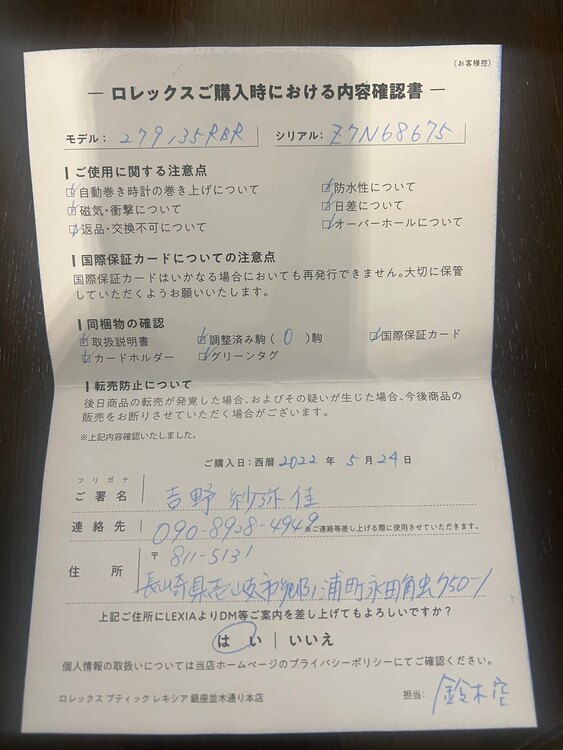 (お客様控)
— ロレックスご購入時における内容確認書 —
モデル: 279135RBR シリアル: Z7N68675
ご使用に関する注意点
自動巻き時計の巻き上げについて 防水性について
磁気・衝撃について 日差について
返品・交換不可について オーバーホールについて
国際保証カードについての注意点
国際保証カードはいかなる場合においても再発行できません。大切に保管
していただくようお願いいたします。
同梱物の確認
取扱説明書 調整済み駒( 0 )駒 国際保証カード
カードホルダー グリーンタグ
転売防止について
後日商品の転売が発覚した場合、およびその疑いが生じた場合、今後商品の
販売をお断りさせていただく場合がございます。
※上記内容確認いたしました。
ご購入日:西暦 2022 年 5 月 24 日
フリガナ
ご署名 吉野 紗弥佳
連絡先 090-8938-4949 ※ご連絡等差し上げる際に使用させていただきます。
〒 811-5131
住所 長崎県壱岐市郷ノ浦町永田触750-1
上記ご住所にLEXIAよりDM等ご案内を差し上げてもよろしいですか?
はい | いいえ
個人情報の取扱いについては当店ホームページのプライバシーポリシーにてご確認ください。
ロレックス ブティック レキシア 銀座並木通り本店 担当: 鈴木空